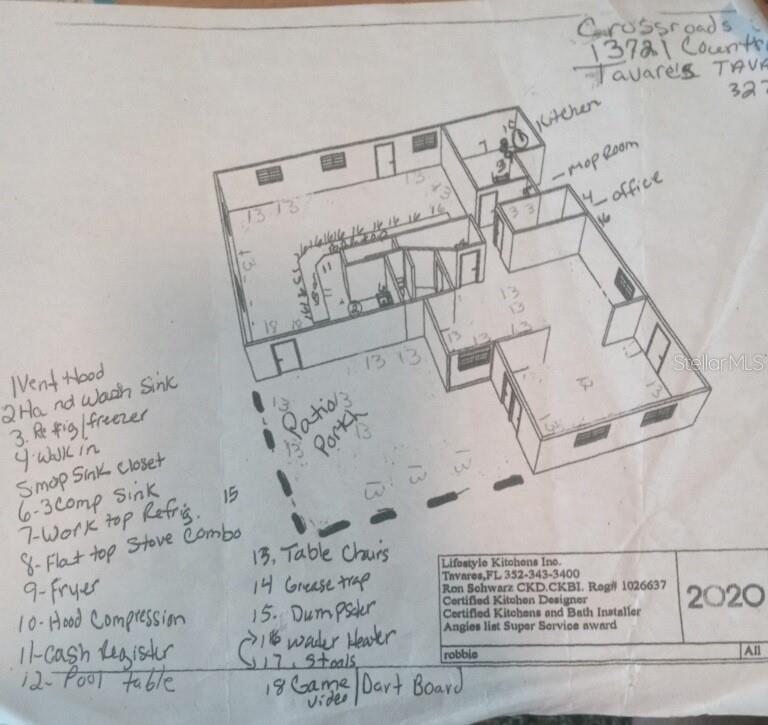 Crossroads
13721 Countr
Tavares TAVA
327
Kitchen
mop Room
office
Patio
Porch
1 Vent Hood
2 Hand Wash Sink
3. Refrig/freezer
4. Walk in
5 mop Sink Closet
6-3 Comp Sink
7-Work top Refrig.
8-Flat top Stove Combo
9-Fryer
10-Hood Compression
11-Cash Register
12-Pool table
15
13. Table Chairs
14 Grease trap
15. Dumpster
16 Water Heater
17. Stools
18 Game video/Dart Board
Lifestyle Kitchens Inc.
Tavares,FL 352-343-3400
Ron Schwarz CKD.CKBI. Reg# 1026637
Certified Kitchen Designer
Certified Kitchens and Bath Installer
Angies list Super Service award
2020
robbie
All
StellarMLS